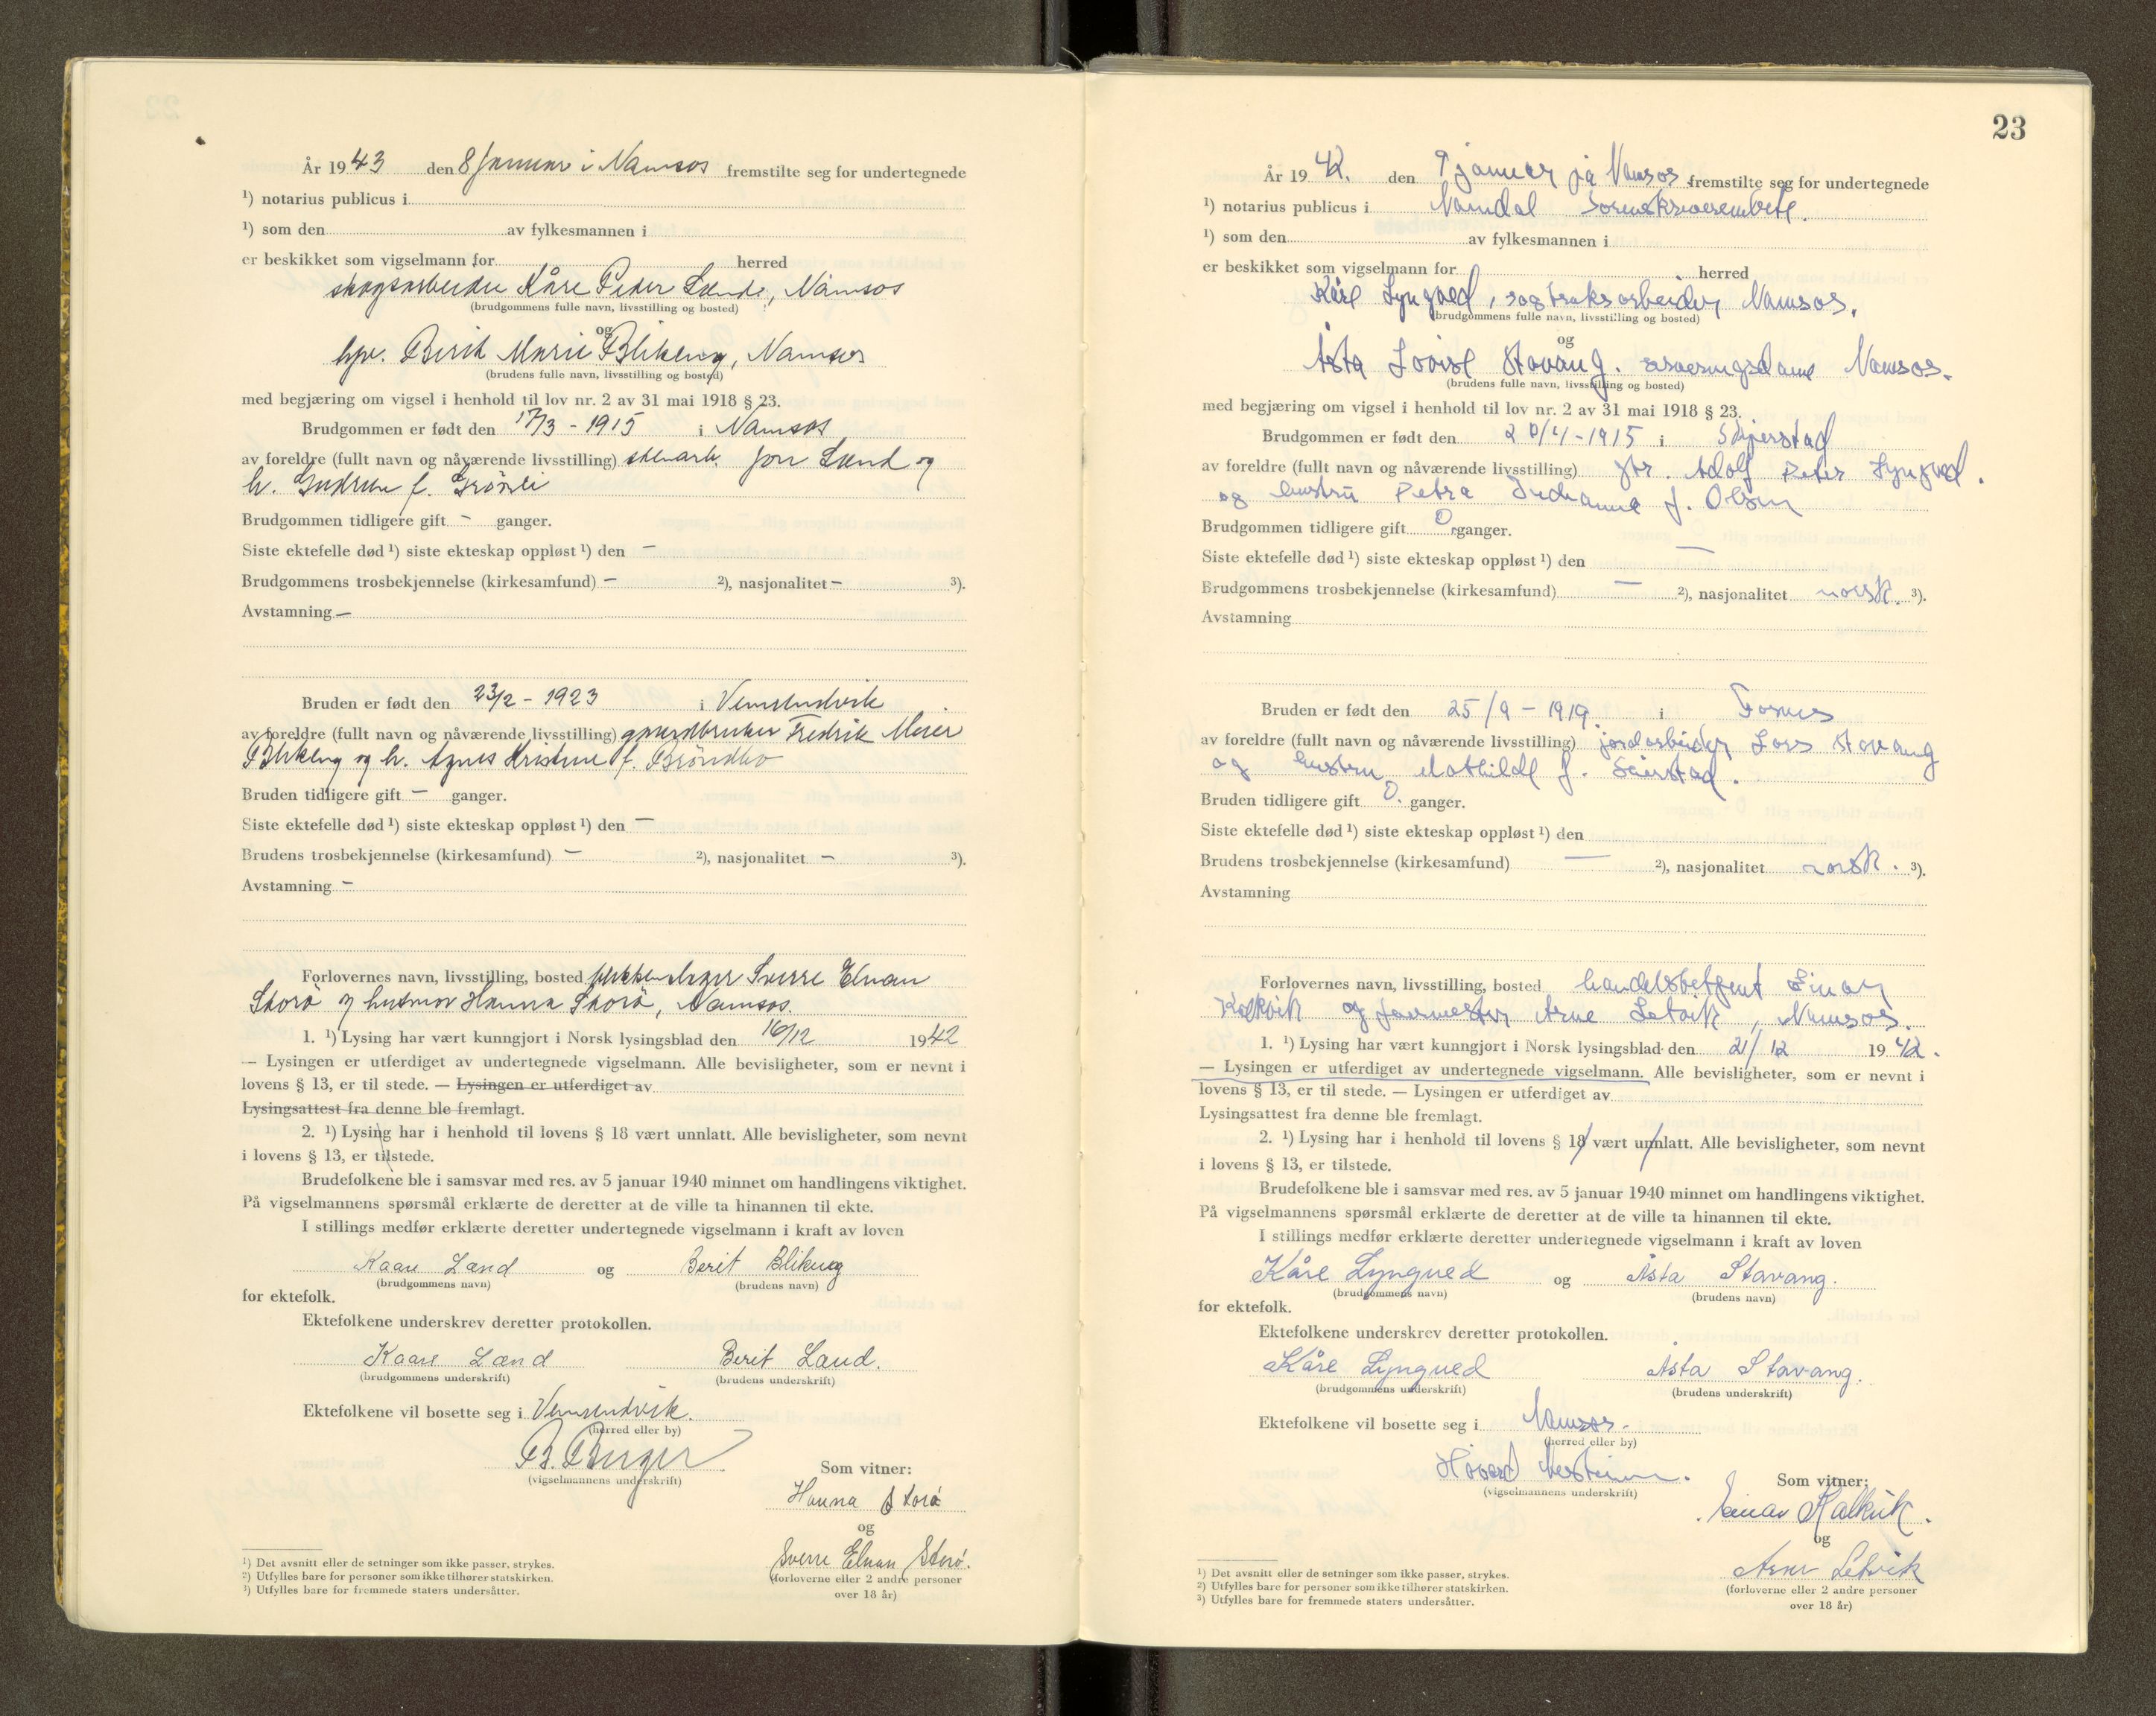 År 1943 den 8 januar i Namsos fremstilte seg for undertegnede
¹) notarius publicus i
¹) som den av fylkesmannen i
er beskikket som vigselmann for herred
skogsarbeider Kåre Peder Lænd, Namsos
(brudgommens fulle navn, livsstilling og bosted)
og
hpr. Berit Marie Blikeng, Namsos
(brudens fulle navn, livsstilling og bosted)
med begjæring om vigsel i henhold til lov nr. 2 av 31 mai 1918 § 23.
Brudgommen er født den 17/3 - 1915 i Namsos
av foreldre (fullt navn og nåværende livsstilling) Jon Lænd og
h. Gudrun f. Grönli
Brudgommen tidligere gift - ganger.
Siste ektefelle død ¹) siste ekteskap oppløst ¹) den —
Brudgommens trosbekjennelse (kirkesamfund) — ²), nasjonalitet — ³).
Avstamning —
Bruden er født den 23/2 - 1923 i Vemundvik
av foreldre (fullt navn og nåværende livsstilling) gaardbruker Fredrik Meier
Blikeng og h. Agnes Kristine f. Bröndbo
Bruden tidligere gift — ganger.
Siste ektefelle død ¹) siste ekteskap oppløst ¹) den —
Brudens trosbekjennelse (kirkesamfund) — ²), nasjonalitet — ³).
Avstamning —
Forlovernes navn, livsstilling, bosted blikkenslager Sverre Elnan
Storö og husmor Hanna Storö, Namsos.
1. ¹) Lysing har vært kunngjort i Norsk lysingsblad den 16/12 1942
— Lysingen er utferdiget av undertegnede vigselmann. Alle bevisligheter, som er nevnt i
lovens § 13, er til stede. — Lysingen er utferdiget av
Lysingsattest fra denne ble fremlagt.
2. ¹) Lysing har i henhold til lovens § 18 vært unnlatt. Alle bevisligheter, som nevnt
i lovens § 13, er tilstede.
Brudefolkene ble i samsvar med res. av 5 januar 1940 minnet om handlingens viktighet.
På vigselmannens spørsmål erklærte de deretter at de ville ta hinannen til ekte.
I stillings medfør erklærte deretter undertegnede vigselmann i kraft av loven
Kaare Lænd og Berit Blikeng
(brudgommens navn) (brudens navn)
for ektefolk.
Ektefolkene underskrev deretter protokollen.
Kaare Lænd Berit Lænd.
(brudgommens underskrift) (brudens underskrift)
Ektefolkene vil bosette seg i Vemundvik.
(herred eller by)
B. Berger
(vigselmannens underskrift)
Som vitner:
Hanna Storö
og
Sverre Elnan Storö.
(forloverne eller 2 andre personer
over 18 år)
¹) Det avsnitt eller de setninger som ikke passer, strykes.
²) Utfylles bare for personer som ikke tilhører statskirken.
³) Utfylles bare for fremmede staters undersåtter.
23
År 1942. den 9 januar på Namsos fremstilte seg for undertegnede
¹) notarius publicus i Namdal Sorenskriverembete.
¹) som den av fylkesmannen i
er beskikket som vigselmann for herred
Kåre Lyngved, sagbruksarbeider, Namsos.
(brudgommens fulle navn, livsstilling og bosted)
og
Åsta Lovise Stavang. Namsos.
(brudens fulle navn, livsstilling og bosted)
med begjæring om vigsel i henhold til lov nr. 2 av 31 mai 1918 § 23.
Brudgommen er født den 20/4 - 1915 i Skjerstad
av foreldre (fullt navn og nåværende livsstilling) gbr. Adolf Peter Lyngved.
og hustru Petra f. Olsen
Brudgommen tidligere gift 0 ganger.
Siste ektefelle død ¹) siste ekteskap oppløst ¹) den —
Brudgommens trosbekjennelse (kirkesamfund) — ²), nasjonalitet norsk. ³).
Avstamning
Bruden er født den 25/9 - 1919. i Fosnes
av foreldre (fullt navn og nåværende livsstilling) jordarbeider Lars Stavang
og hustru Mathilde f. Seierstad.
Bruden tidligere gift 0. ganger.
Siste ektefelle død ¹) siste ekteskap oppløst ¹) den
Brudens trosbekjennelse (kirkesamfund) — ²), nasjonalitet norsk. ³).
Avstamning
Forlovernes navn, livsstilling, bosted handelsbetjent Einar
Kalkvik og Arne Letvik, Namsos.
1. ¹) Lysing har vært kunngjort i Norsk lysingsblad den 21/12 1942.
— Lysingen er utferdiget av undertegnede vigselmann. Alle bevisligheter, som er nevnt i
lovens § 13, er til stede. — Lysingen er utferdiget av
Lysingsattest fra denne ble fremlagt.
2. ¹) Lysing har i henhold til lovens § 18 vært unnlatt. Alle bevisligheter, som nevnt
i lovens § 13, er tilstede.
Brudefolkene ble i samsvar med res. av 5 januar 1940 minnet om handlingens viktighet.
På vigselmannens spørsmål erklærte de deretter at de ville ta hinannen til ekte.
I stillings medfør erklærte deretter undertegnede vigselmann i kraft av loven
Kåre Lyngved og Åsta Stavang.
(brudgommens navn) (brudens navn)
for ektefolk.
Ektefolkene underskrev deretter protokollen.
Kåre Lyngved Åsta Stavang.
(brudgommens underskrift) (brudens underskrift)
Ektefolkene vil bosette seg i Namsos.
(herred eller by)
Håvard
(vigselmannens underskrift)
Som vitner:
Einar Kalkvik.
og
Arne Letvik
(forloverne eller 2 andre personer
over 18 år)
¹) Det avsnitt eller de setninger som ikke passer, strykes.
²) Utfylles bare for personer som ikke tilhører statskirken.
³) Utfylles bare for fremmede staters undersåtter.